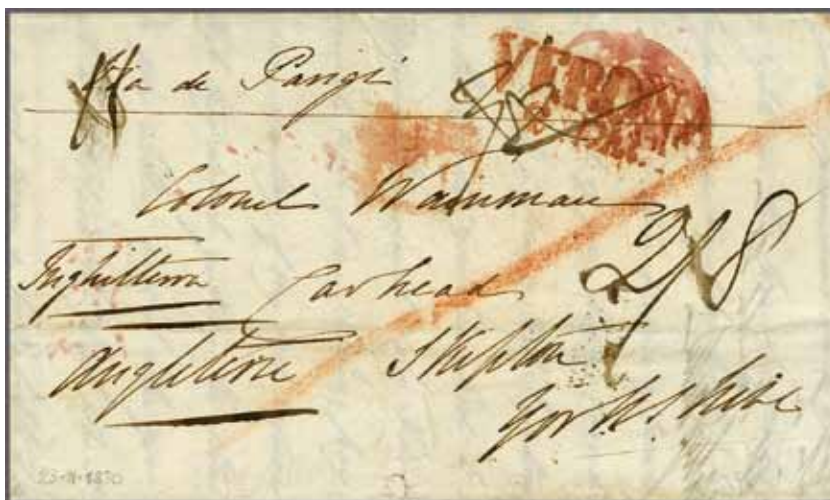 Via de Parigi
VERONA
Colonel Wainman
2/8
Inghilterra Carhead
Angleterre Skipton
Yorkshire
23-11-1830